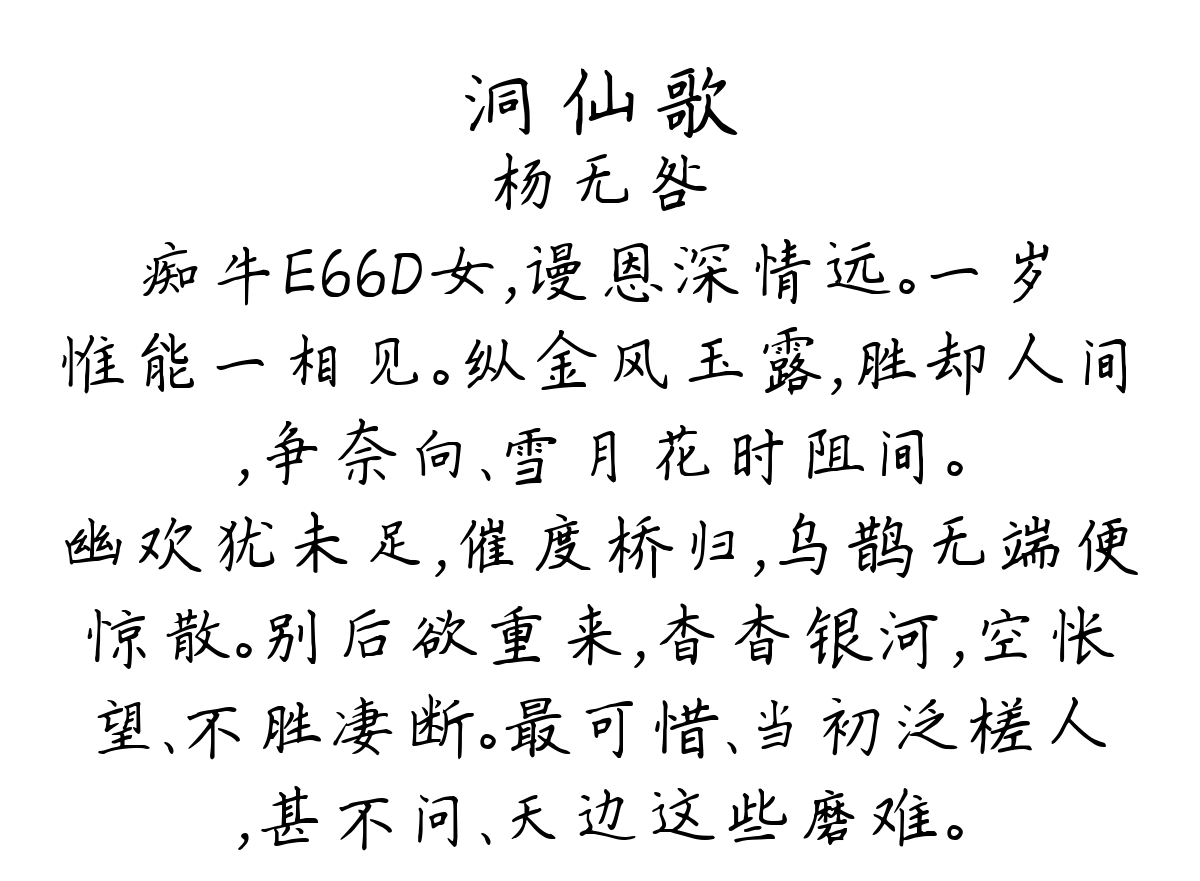 洞仙歌
杨无咎
痴牛E66D女,谩恩深情远。一岁
惟能一相见。纵金风玉露,胜却人间
,争奈向、雪月花时阻间。
幽欢犹未足,催度桥归,乌鹊无端便
惊散。别后欲重来,杳杳银河,空怅
望、不胜凄断。最可惜、当初泛槎人
,甚不问、天边这些磨难。